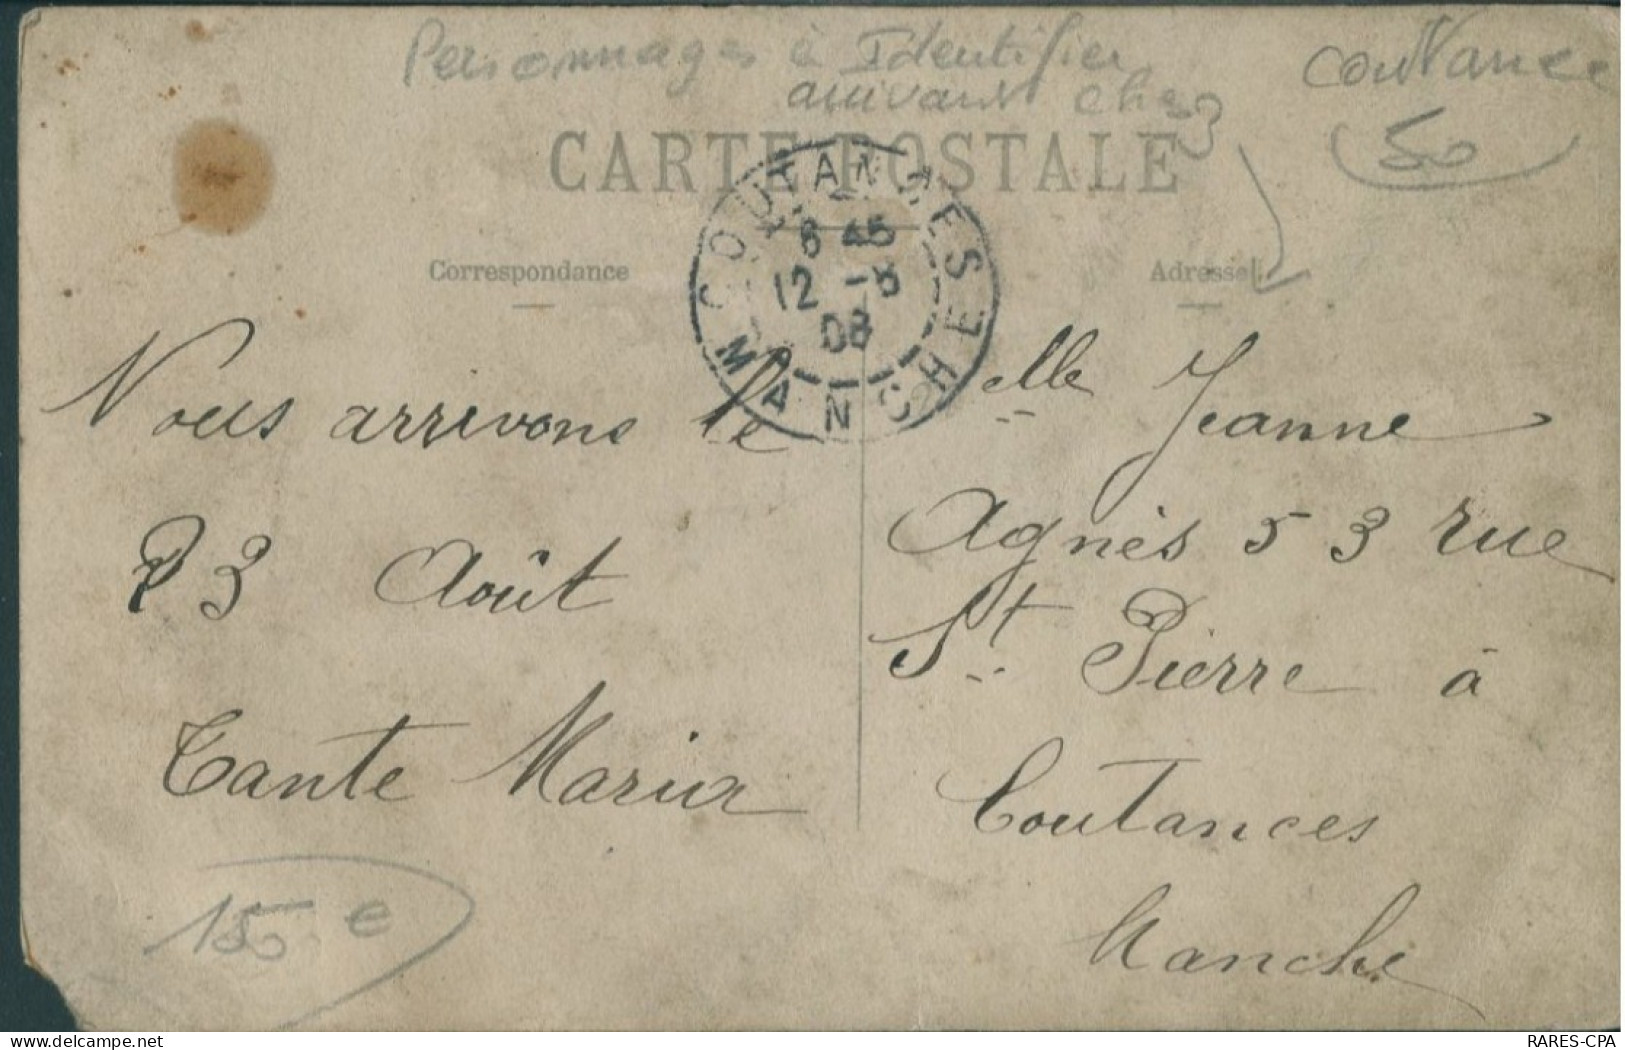 Personnages à Identifier
arrivant chez
Coutance
50
CARTE POSTALE
COUTANCES MANCHE
6 45
12 -8
08
Correspondance
Adresse
Nous arrivons le
23 Août
Tante Maria
Mlle Jeanne
Agnès 53 rue
St. Pierre à
Coutances
Manche
150 e
RARES-CPA